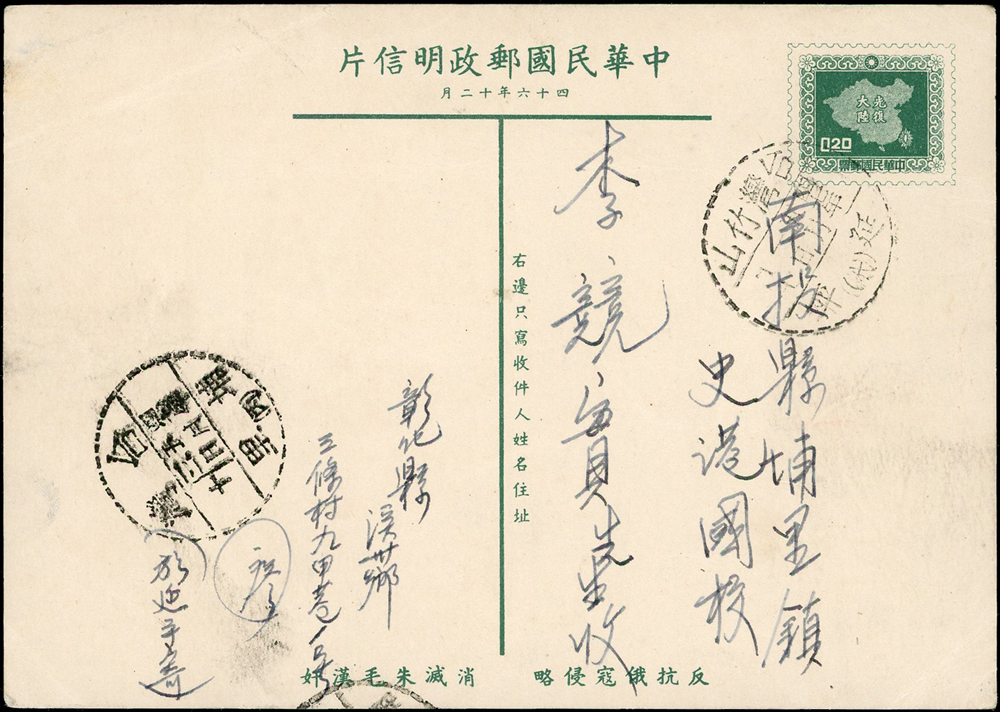 中華民國郵政明信片
四十六年十二月
光復大陸
0.20
中華民國郵票
南投縣埔里鎮
史港國校
李競
先生收
右邊只寫收件人姓名住址
彰化縣
溪州鄉
三條村九甲巷
台灣
竹山
延平
台灣
埔里
反抗俄寇侵略
消滅朱毛漢奸